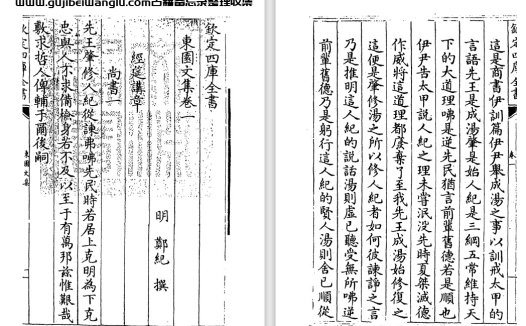 www.gujibeiwanglu.com古籍备忘录整理收集
欽定四庫全書
東園文集卷一
明 鄭紀 撰
經筵講章
尚書一
先王肇修人紀從諫弗咈先民時若居上克明為下克
忠與人不求備檢身若不及以至于有萬邦茲惟艱哉
敷求哲人俾輔于爾後嗣
欽定四庫全書
東園文集
欽定四庫全書
卷一
這是商書伊訓篇伊尹舉成湯之事以訓戒太甲的
言語先王是成湯肇是始人紀是三綱五常維持天
下的大道理咈是逆先民猶言前輩舊德若是順也
伊尹告太甲說人紀之理未嘗泯沒先時夏桀滅德
作威將這道理都廢棄了至我先王成湯始修復之
這便是肇修湯之所以修人紀者如何彼諫諍之言
乃是推明這人紀的說話湯則虛已聽受無所咈逆
前輩舊德乃是躬行這人紀的賢人湯則舍已順從